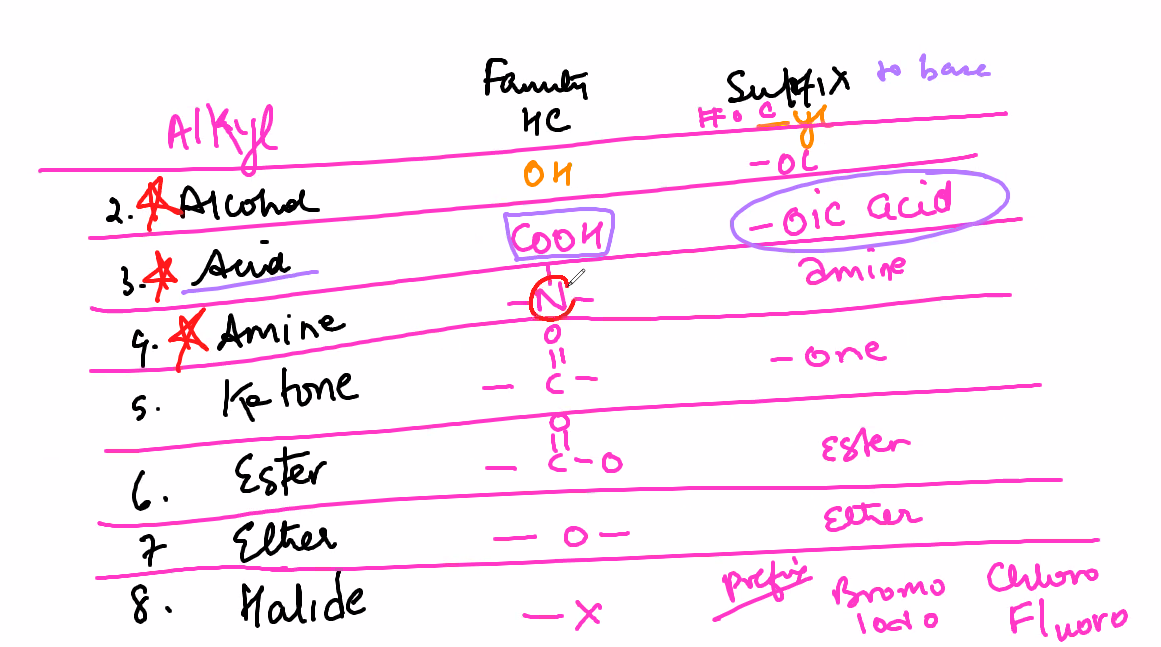 Family Suffix to base
Alkyl HC # of C — yl
2. Alcohol OH - OL
3. Acid COOH - oic acid
4. Amine - N - amine
5. Ketone O
- C - - one
6. Ester O
- C - O Ester
7 Ether - O - Ether
8. Halide - X prefix Bromo Chloro
Iodo Fluoro